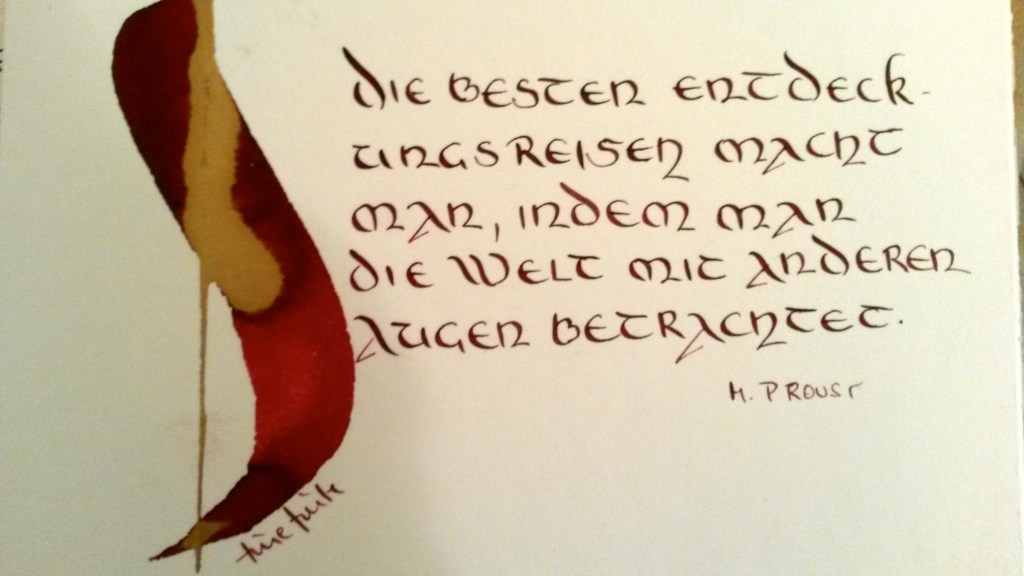 DIE BESTEN ENTDECK-
UNGSREISEN MACHT
MAN, INDEM MAN
DIE WELT MIT ANDEREN
AUGEN BETRACHTET.
M. PROUST